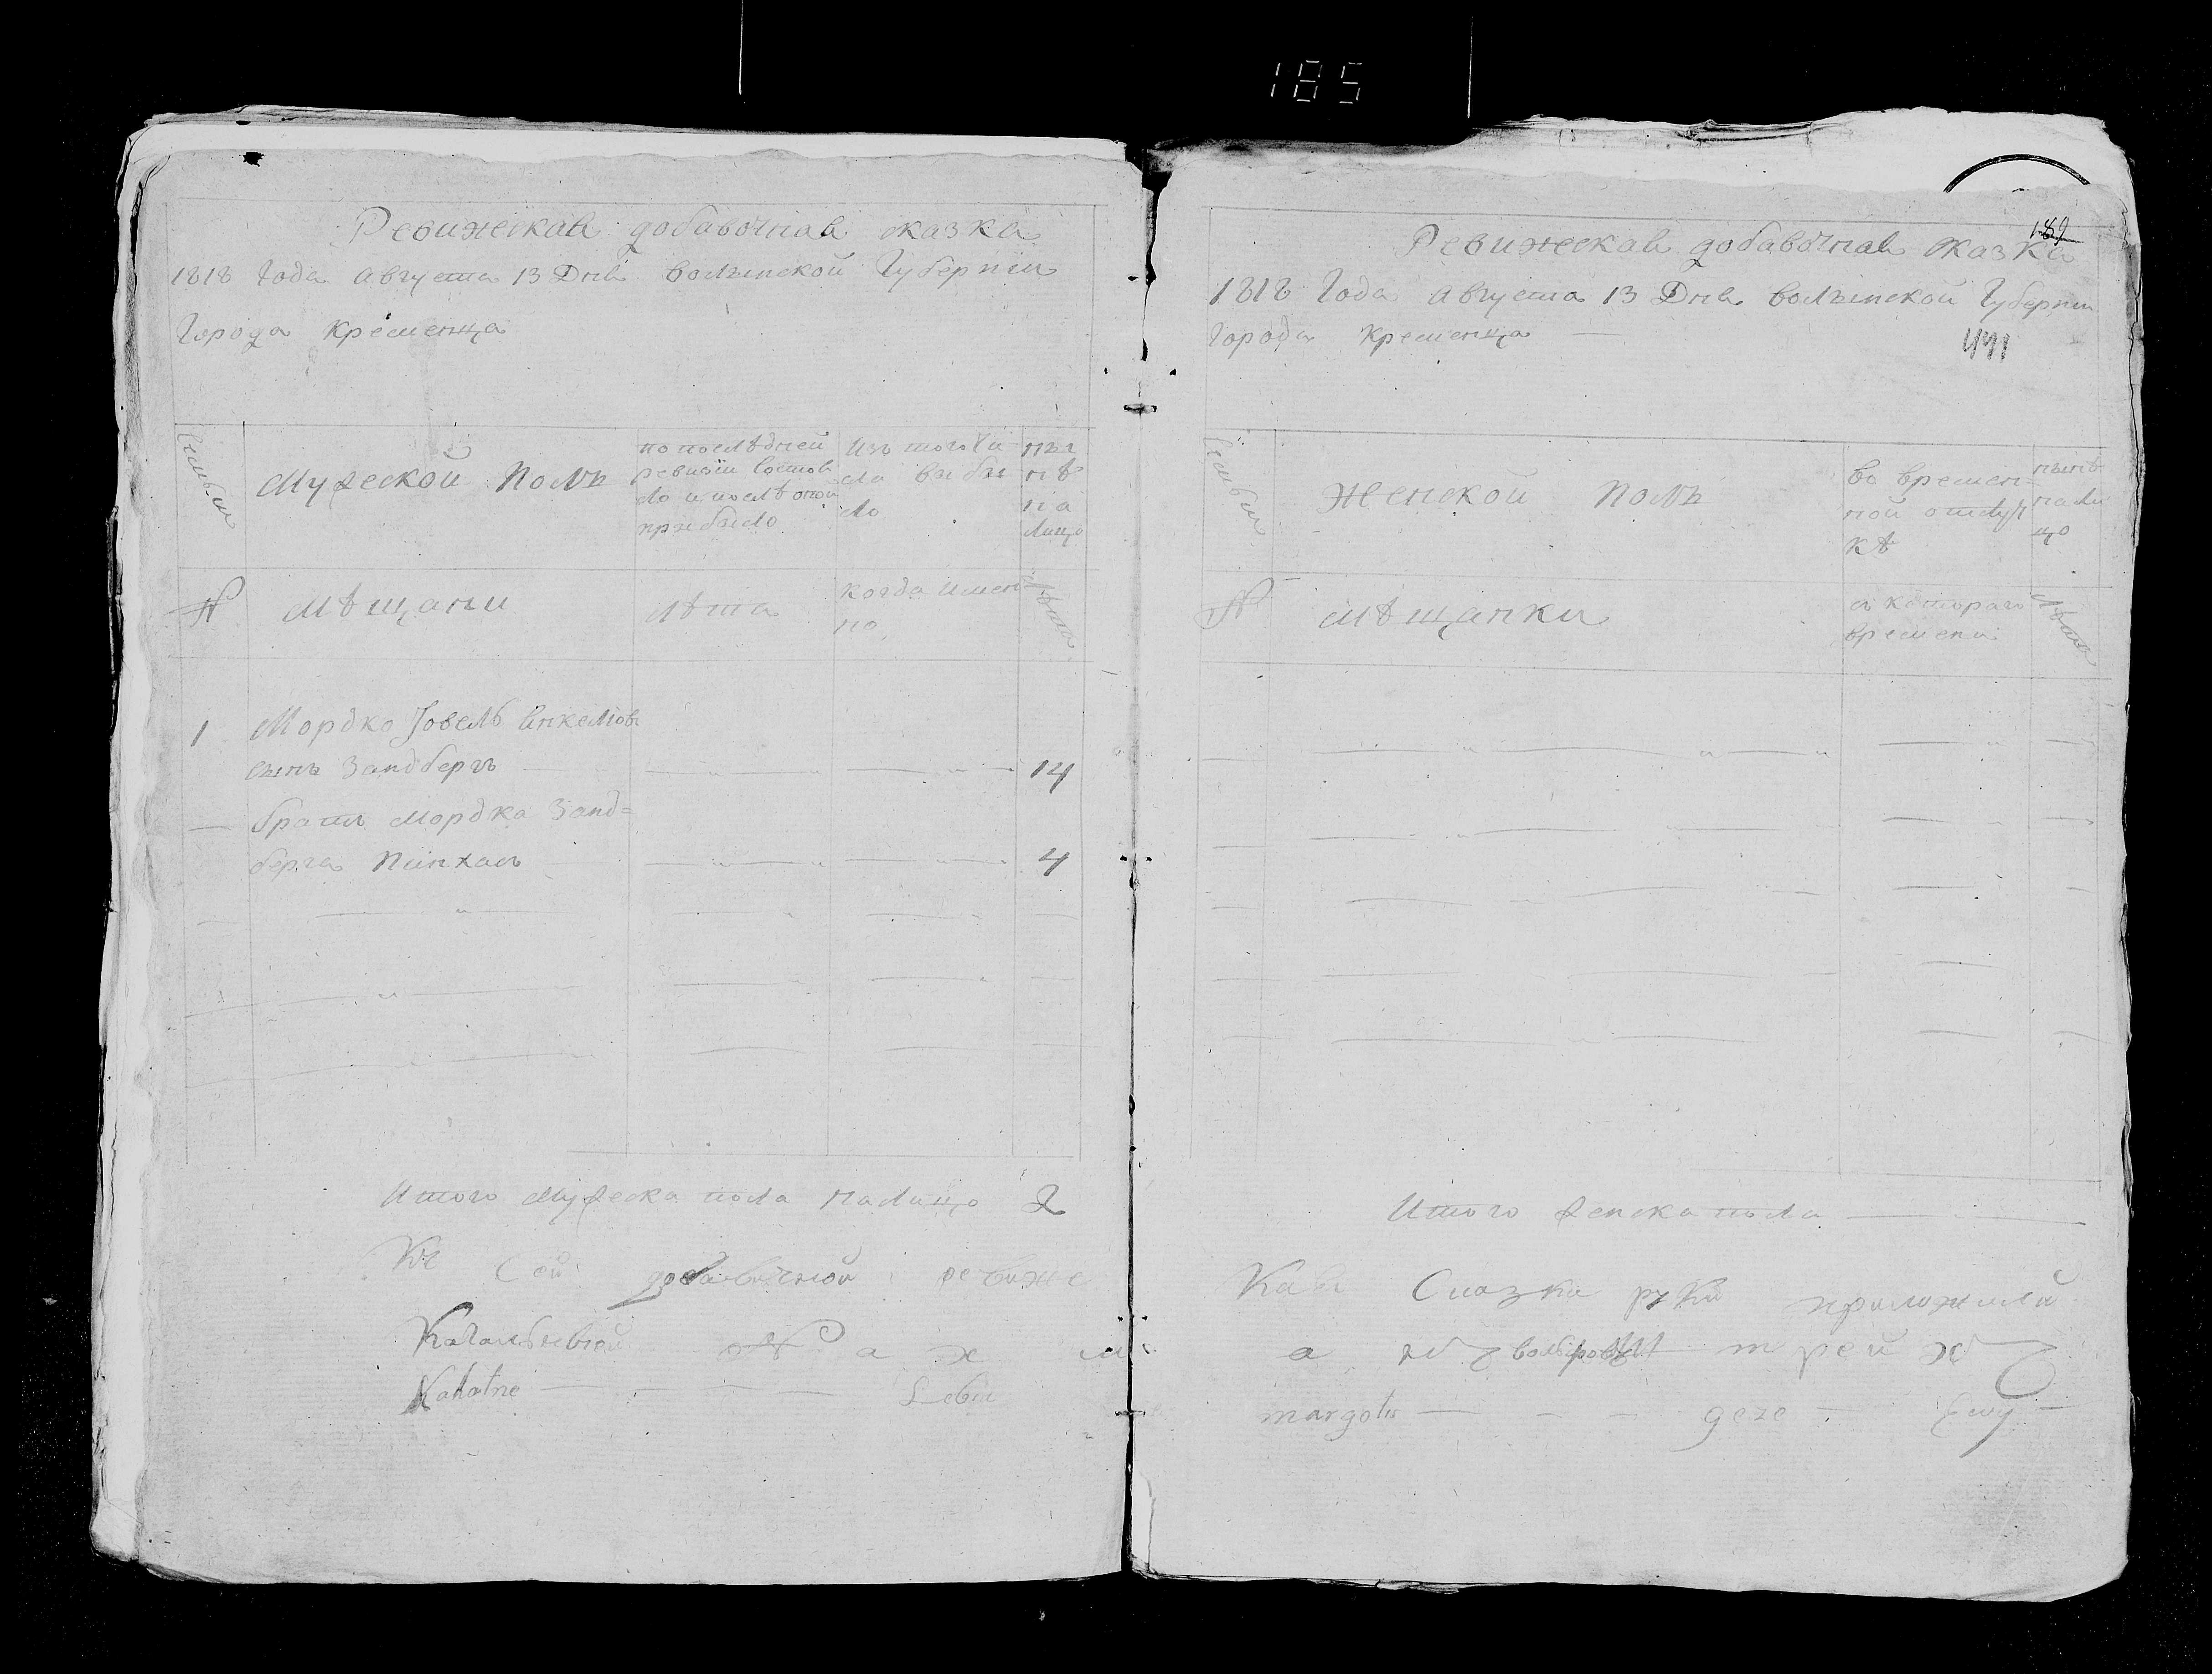 185
Ревижская добавочная сказка
1818 Года августа 13 Дня волынской Губернии
Города кременца
Семьи
Мужеской полъ
по последней ревизіи состояло и после оной прибыло
Изъ того числа выбыло
нынѣ на лицо
№
мѣщани
лѣта
когда имен=но
лѣта
1 Мордко Іовель
сынъ Зандбергъ 14
братъ Мордка Занд=
берга Пинхасъ 4
Итого мужеска пола налицо 2
Къ Сей добавочной ревиже
Кагальной
Kahalne
189
Ревижская добавочная сказка
1818 Года августа 13 Дня волынской Губернии
Города кременца
441
Семьи
женской полъ
во времен=ной отлучкѣ
нынѣ налицо
№
мѣщанки
съ котораго времени
лѣта
Итого женска пола
Кая Сказки руки приложили